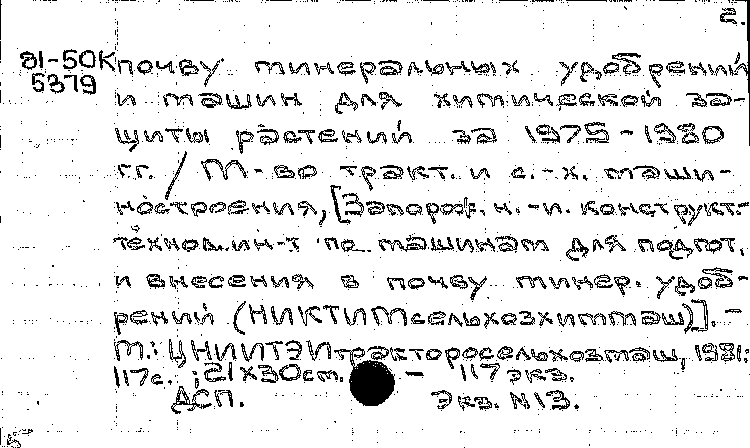 2.
81-50К почву минеральных удобрений
5379 и машин для химической за-
щиты растений за 1975-1980
г.г. / М-во тракт. и с.-х. маши-
ностроения, [Запорож. н.-и. конструкт.-
технол. ин-т по машинам для подгот.
и внесения в почву минер. удоб-
рений (НИКТИМсельхозхиммаш)]. -
М.: ЦНИИТЭИтракторосельхозмаш, 1981.
117с. ; 21х30см. - 117 экз.
ДСП. Экз. N13.